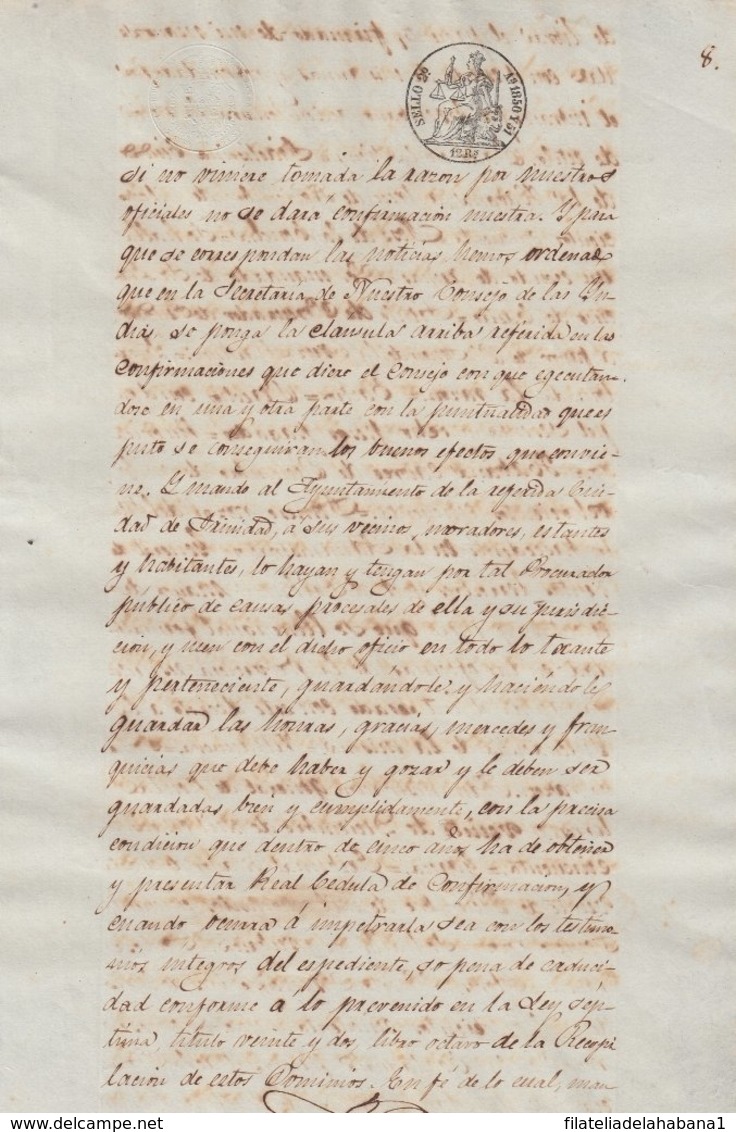 8.
SELLO 2º Aº 1850 Y 51
12 Rs
si no viniere tomada la razon por nuestros
oficiales no se dará confirmacion nuestra. Y para
que se correspondan las noticias, hemos ordenado
que en la Secretaría de Nuestro Consejo de las Yn-
dias se ponga la clausula arriba referida en las
confirmaciones que diere el Consejo con que egecutan-
dose en una y otra parte con la puntualidad que es
justo se conseguiran los buenos efectos que convie-
ne. Y mando al Ayuntamiento de la referida Ciu-
dad de Trinidad, á sus vecinos, moradores, estantes
y habitantes, lo hayan y tengan por tal Procurador
público de causas procesales de ella y su jurisdic-
cion, y usen con el dicho oficio en todo lo tocante
y perteneciente, guardándole y haciéndole
guardar las honras, gracias, mercedes y fran-
quicias que debe haber y gozar y le deben ser
guardadas bien y cumplidamente, con la precisa
condicion que dentro de cinco años ha de obtener
y presentar Real Cédula de Confirmacion, y
cuando ocurra á impetrarla sea con los testimo-
nios integros del espediente, so pena de caduci-
dad conforme á lo prevenido en la Ley sép-
tima, título veinte y dos, libro octavo de la Recopi
lacion de estos Dominios. En fé de lo cual, man
filateliadelahabana1